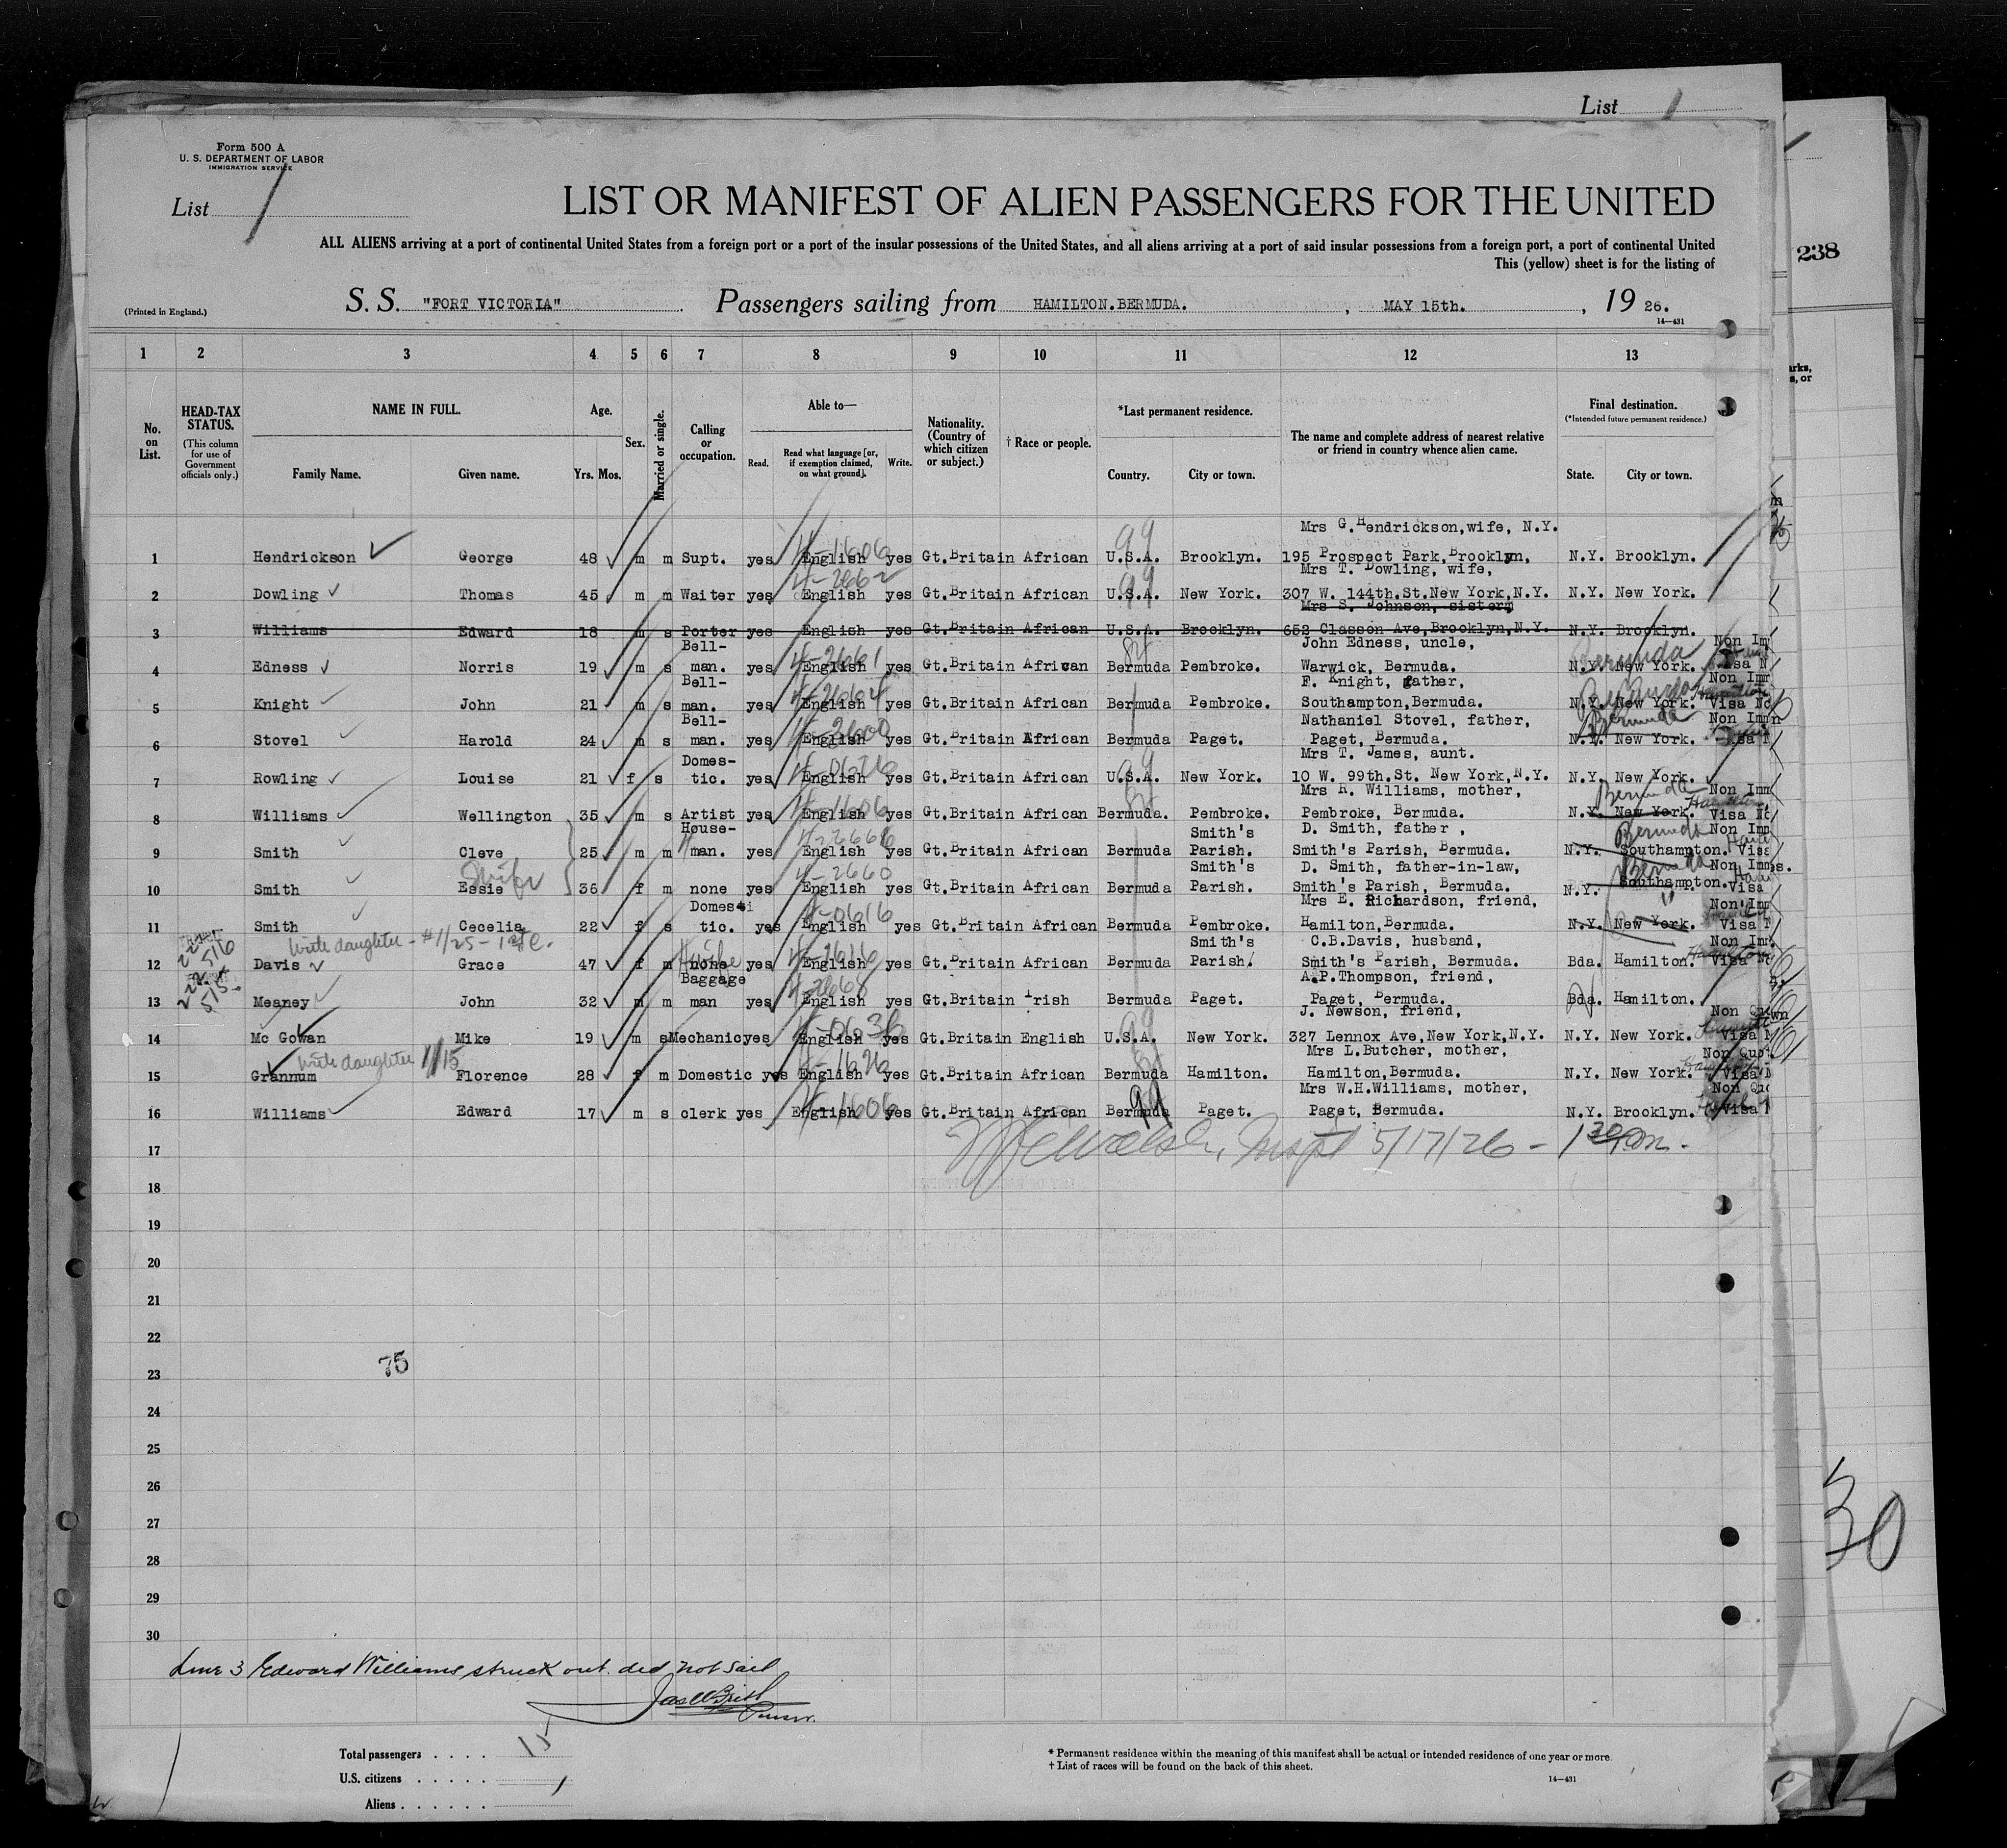 List 1
Form 500 A
U. S. DEPARTMENT OF LABOR
IMMIGRATION SERVICE
List 1
LIST OR MANIFEST OF ALIEN PASSENGERS FOR THE UNITED
ALL ALIENS arriving at a port of continental United States from a foreign port or a port of the insular possessions of the United States, and all aliens arriving at a port of said insular possessions from a foreign port, a port of continental United
This (yellow) sheet is for the listing of
238
(Printed in England.)
S. S. "FORT VICTORIA" Passengers sailing from HAMILTON.BERMUDA. , MAY 15th. , 19 26.
14—431
1 2 3 4 5 6 7 8 9 10 11 12 13
No. on List. HEAD-TAX STATUS. (This column for use of Government officials only.) NAME IN FULL. Family Name. Given name. Age. Yrs. Mos. Sex. Married or single. Calling or occupation. Able to— Read. Read what language [or, if exemption claimed, on what ground]. Write. Nationality. (Country of which citizen or subject.) † Race or people. *Last permanent residence. Country. City or town. The name and complete address of nearest relative or friend in country whence alien came. Final destination. (*Intended future permanent residence.) State. City or town.
Mrs G.Hendrickson,wife, N.Y.
1 Hendrickson George 48 m m Supt. yes English yes Gt.Britain African U.S.A. Brooklyn. 195 Prospect Park,Brooklyn, N.Y. Brooklyn.
Mrs T. Dowling, wife,
2 Dowling Thomas 45 m m Waiter yes English yes Gt.Britain African U.S.A. New York. 307 W. 144th.St.New York,N.Y. N.Y. New York.
Mrs S. Johnson, sister,
3 Williams Edward 18 m s Porter yes English yes Gt.Britain African U.S.A. Brooklyn. 652 Classon Ave,Brooklyn,N.Y. N.Y. Brooklyn.
Bell- John Edness, uncle, Non Im
4 Edness Norris 19 m s man. yes English yes Gt.Britain African Bermuda Pembroke. Warwick, Bermuda. N.Y. New York. Bermuda Visa N
Bell- F. Knight, father, Non Imm
5 Knight John 21 m s man. yes English yes Gt.Britain African Bermuda Pembroke. Southampton,Bermuda. N.Y. New York. Bermuda Visa No
Bell- Nathaniel Stovel, father, Non Imm
6 Stovel Harold 24 m s man. yes English yes Gt.Britain African Bermuda Paget. Paget, Bermuda. N.Y. New York. Bermuda Visa N
Domes- Mrs T. James, aunt.
7 Rowling Louise 21 f s tic. yes English yes Gt.Britain African U.S.A. New York. 10 W. 99th.St. New York,N.Y. N.Y. New York.
Mrs R. Williams, mother, Non Imm
8 Williams Wellington 35 m s Artist yes English yes Gt.Britain African Bermuda. Pembroke. Pembroke, Bermuda. N.Y. New York. Bermuda Visa No
House- Smith's D. Smith, father , Non Imm
9 Smith Cleve 25 m m man. yes English yes Gt.Britain African Bermuda Parish. Smith's Parish, Bermuda. N.Y. Southampton. Bermuda Visa
Wife Smith's D. Smith, father-in-law, Non Imms.
10 Smith Essie 36 f m none yes English yes Gt.Britain African Bermuda Parish. Smith's Parish, Bermuda. N.Y. Southampton. Bermuda Visa
Domesti Mrs E. Richardson, friend, Non Imm
11 Smith Cecelia 22 f s tic. yes English yes Gt.Britain African Bermuda Pembroke. Hamilton,Bermuda. N.Y. New York. Visa
Smith's C.B.Davis, husband, Non Imm
12 Davis Grace 47 f m none yes English yes Gt.Britain African Bermuda Parish. Smith's Parish, Bermuda. Bda. Hamilton. Visa No
Baggage A.P.Thompson, friend,
13 Meaney John 32 m m man yes English yes Gt.Britain Irish Bermuda Paget. Paget, Bermuda. Bda. Hamilton.
J. Newson, friend, Non Quo
14 Mc Gowan Mike 19 m s Mechanic yes English yes Gt.Britain English U.S.A. New York. 327 Lennox Ave,New York,N.Y. N.Y. New York. Visa N
Mrs L.Butcher, mother, Non Quo
15 Grannum Florence 28 f m Domestic yes English yes Gt.Britain African Bermuda Hamilton. Hamilton,Bermuda. N.Y. New York. Visa N
Mrs W.H.Williams, mother, Non Quo
16 Williams Edward 17 m s clerk yes English yes Gt.Britain African Bermuda Paget. Paget, Bermuda. N.Y. Brooklyn. Visa
17 5/17/26 -
18
19
20
21
22
75
23
24
25
26
27
30
28
29
30
Line 3 Edward Williams struck out did not sail
Purser.
Total passengers . . . . 15
U.S. citizens . . . . .
Aliens . . . . . .
* Permanent residence within the meaning of this manifest shall be actual or intended residence of one year or more.
† List of races will be found on the back of this sheet.
14—431